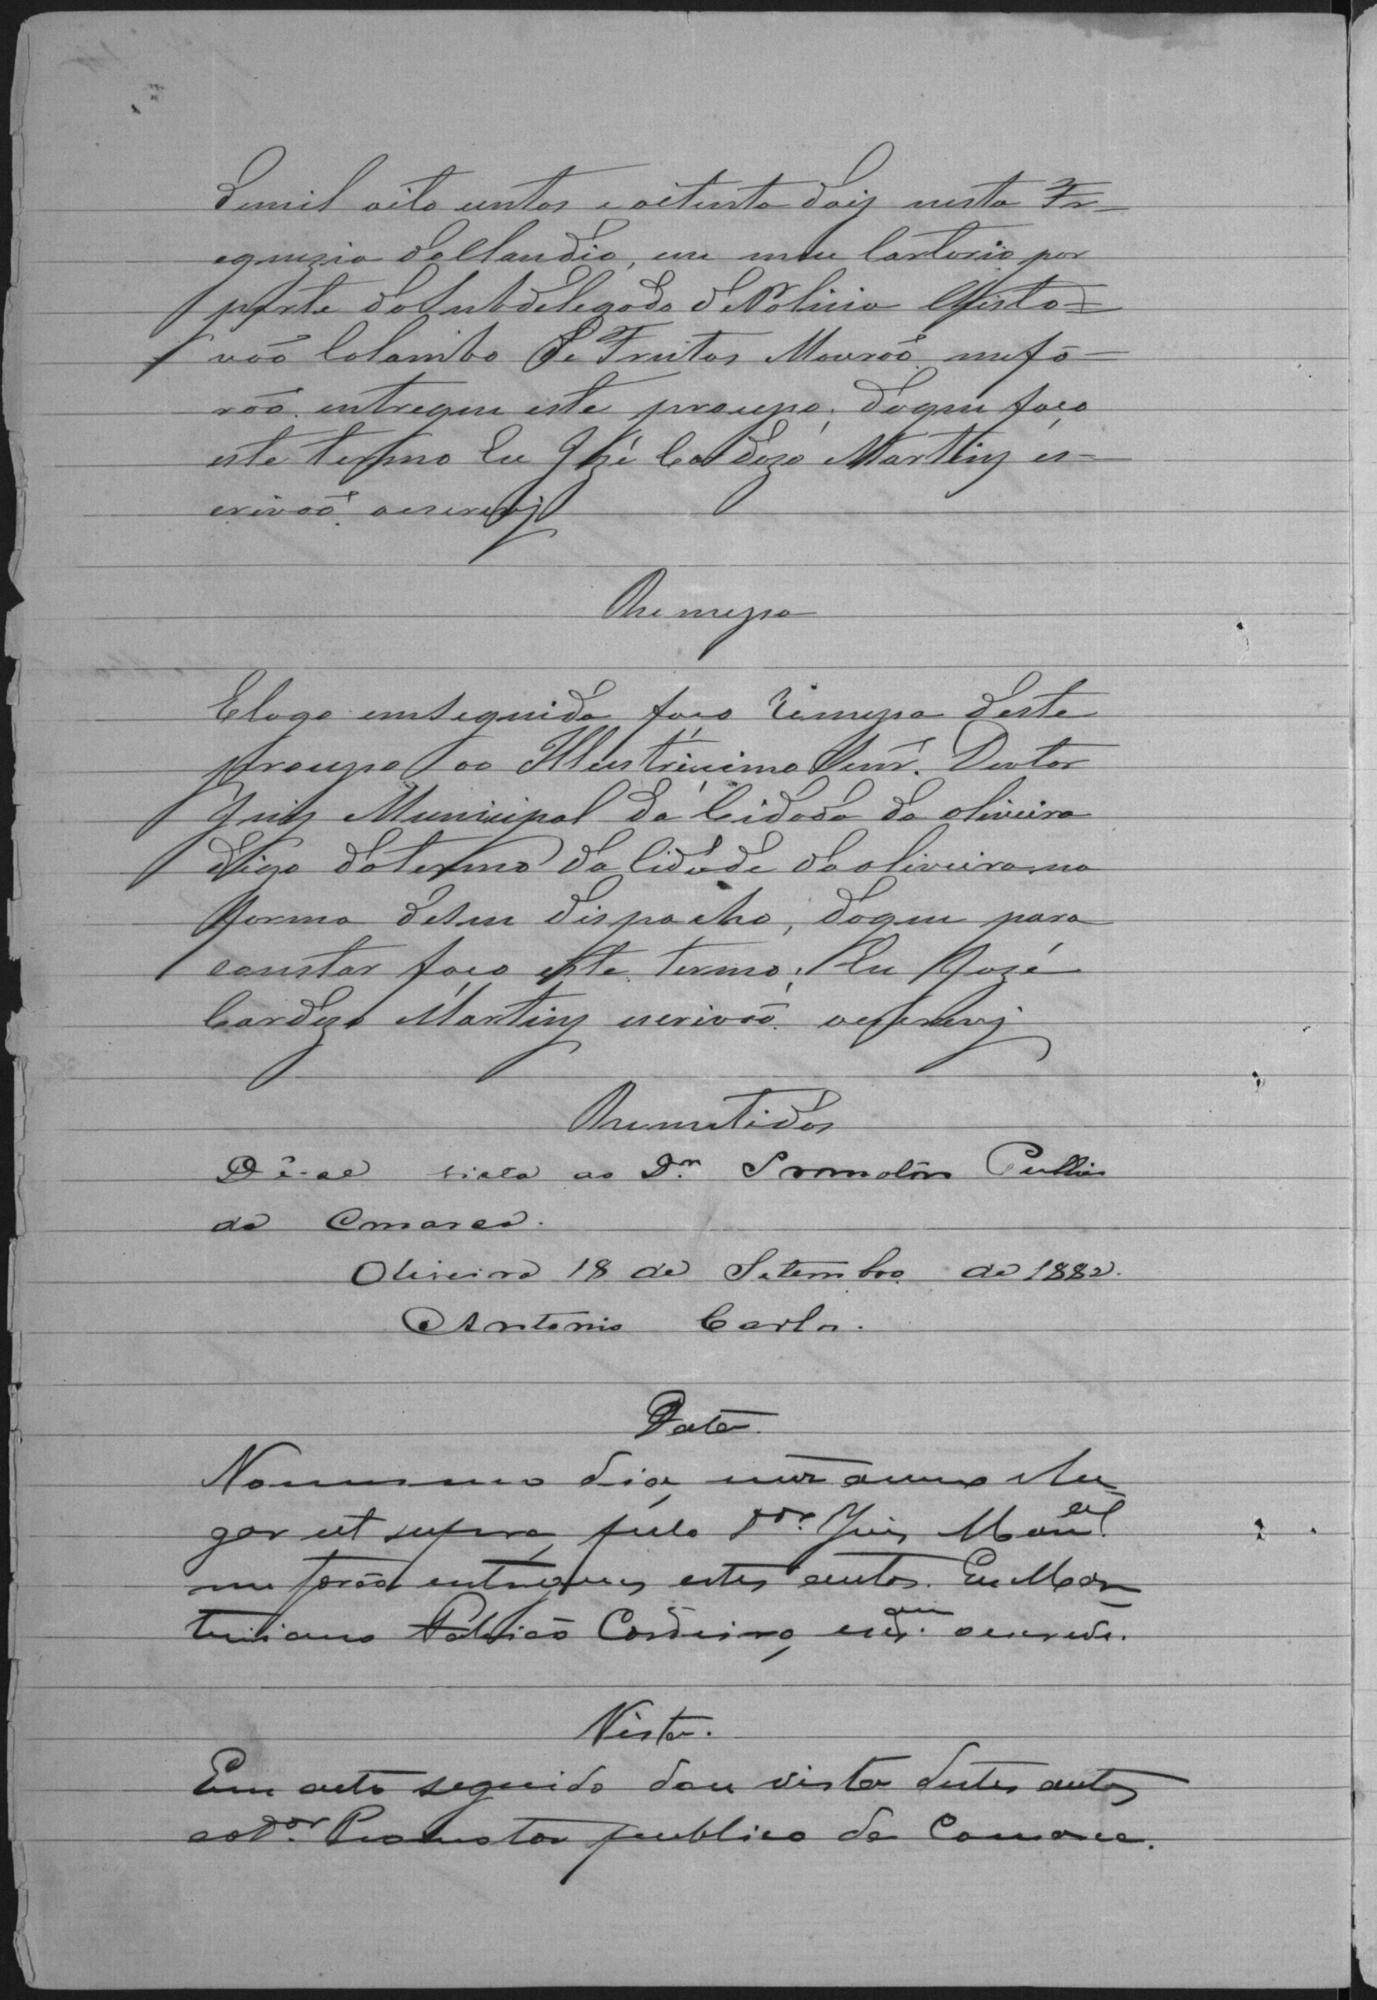 demil oito centos e oitenta dois nesta Fr-
eguezia do Claudio, em meu Cartorio por
parte do Subdelegado de Policia Christo=
vão Colombo de Freitas Mourão me fo-
rão entregue este prosseço, do que faço
este termo Eu José Cardozo Martins es-
crivão oescrevj
Remessa
E logo emseguida faço remessa deste
prosseço ao Illustricimo Senr. Doutor
Juiz Municipal da Cidade da oliveira
digo do termo da Cidade da oliveira na
forma de seu dispacho, do que para
constar faço este termo; Eu José
Cardozo Martins escrivão oescrevj
Remetidos
Dê-se vista ao Dr. Promotor Publico
da Comarca.
Oliveira 18 de Setembro de 1882.
Antonio Carlos.
Data
No mesmo dia, mez anno e lu-
gar ut supra, pelo Dor. Juiz Moral
me forão entregues estes autos. Eu Mar-
Cordeiro, oescrevi.
Vista.
Em acto seguido dou vista destes autos
ao Dor. Promotor publico da Comarca.